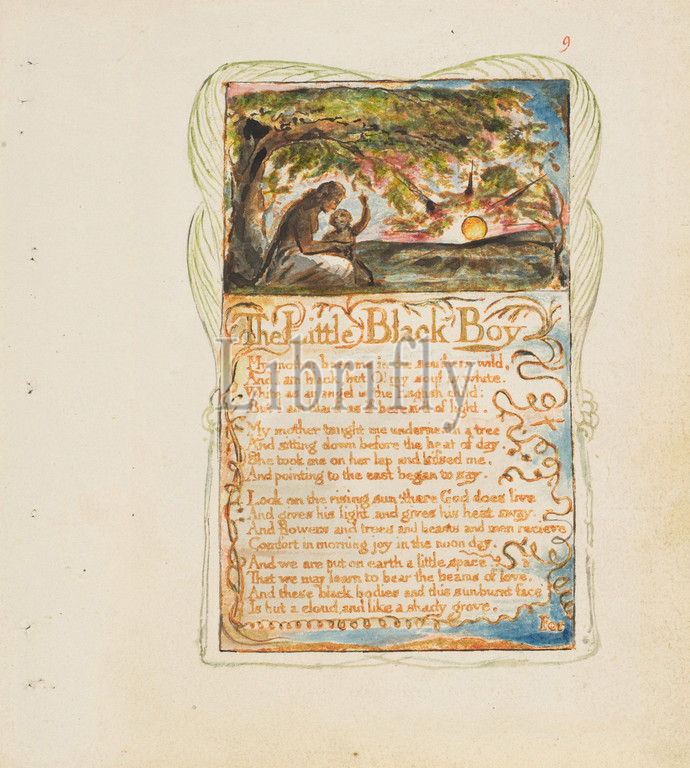 9
The Little Black Boy
Librifly
My mother bore me in the southern wild,
And I am black, but O! my soul is white.
White as an angel is the English child:
But I am black as if bereav'd of light.
My mother taught me underneath a tree
And sitting down before the heat of day.
She took me on her lap and kissed me,
And pointing to the east began to say.
Look on the rising sun: there God does live
And gives his light, and gives his heat away.
And flowers and trees and beasts and men recieve
Comfort in morning joy in the noon day.
And we are put on earth a little space.
That we may learn to bear the beams of love,
And these black bodies and this sun-burnt face
Is but a cloud, and like a shady grove.
For